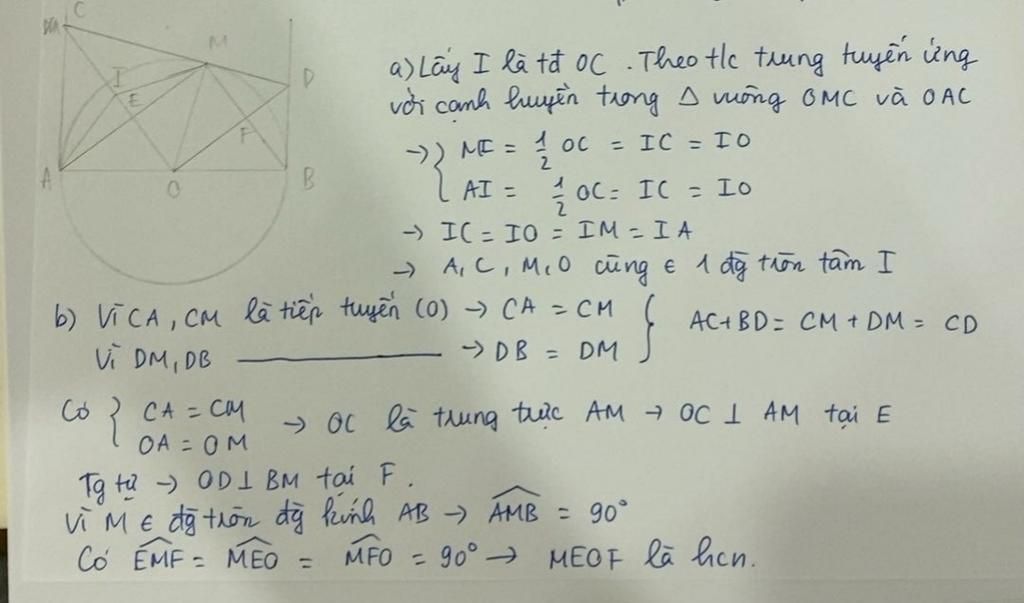 C
M
D
I
E
F
A
O
B
a) Lấy I là tđ OC. Theo t/c trung tuyến ứng
với cạnh huyền trong Δ vuông OMC và OAC
→ { MI = 1/2 OC = IC = IO
AI = 1/2 OC = IC = IO
→ IC = IO = IM = IA
→ A, C, M, O cùng ∈ 1 đg tròn tâm I
b) Vì CA, CM là tiếp tuyến (O) → CA = CM } AC+BD = CM + DM = CD
Vì DM, DB ———— → DB = DM
Có { CA = CM → OC là trung trực AM → OC ⊥ AM tại E
OA = OM
Tg tự → OD ⊥ BM tại F.
Vì M ∈ đg tròn đg kính AB → \widehat{AMB} = 90°
Có \widehat{EMF} = \widehat{MEO} = \widehat{MFO} = 90° → MEOF là hcn.